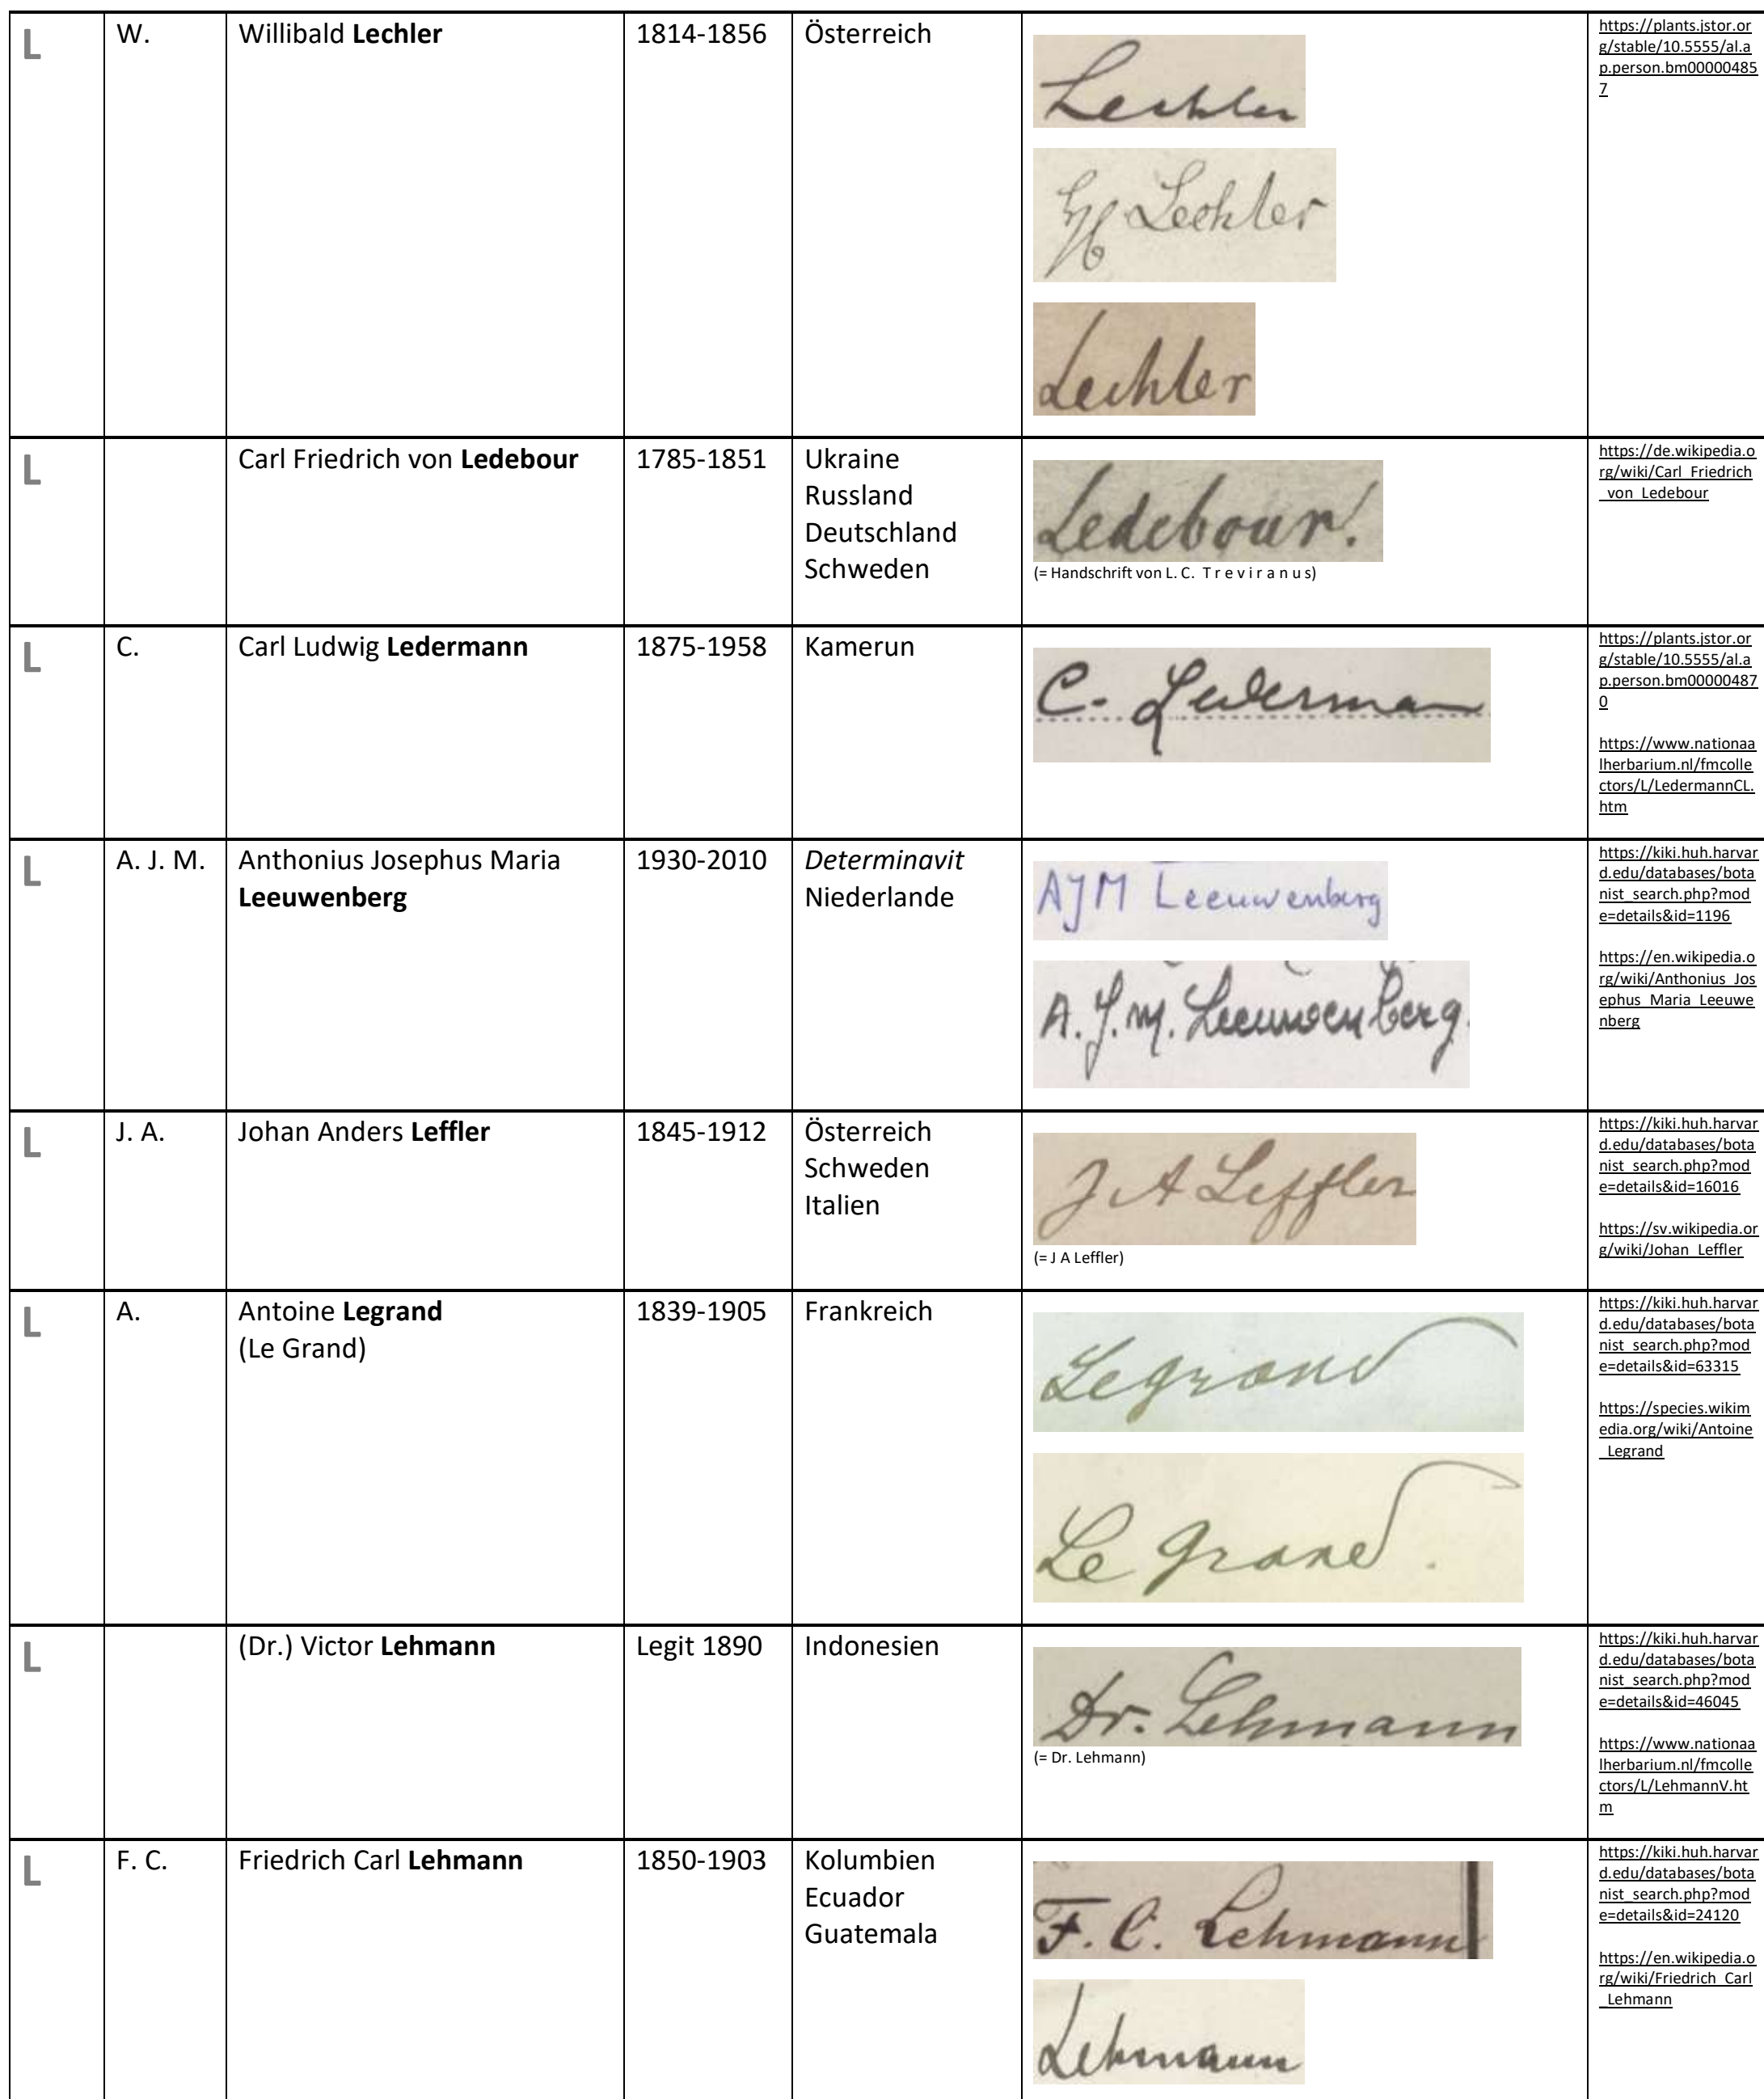 L
W.
Willibald Lechler
1814-1856
Österreich
Lechler
Lechler
Lechler
https://plants.jstor.or
g/stable/10.5555/al.a
p.person.bm00000485
7
L
Carl Friedrich von Ledebour
1785-1851
Ukraine
Russland
Deutschland
Schweden
Ledebour!
(= Handschrift von L. C. T r e v i r a n u s)
https://de.wikipedia.o
rg/wiki/Carl_Friedrich
_von_Ledebour
L
C.
Carl Ludwig Ledermann
1875-1958
Kamerun
C. Lederman
https://plants.jstor.or
g/stable/10.5555/al.a
p.person.bm00000487
0
https://www.nationaa
lherbarium.nl/fmcolle
ctors/L/LedermannCL.
htm
L
A. J. M.
Anthonius Josephus Maria
Leeuwenberg
1930-2010
Determinavit
Niederlande
AJM Leeuwenberg
A. J. M. Leeuwenberg.
https://kiki.huh.harvar
d.edu/databases/bota
nist_search.php?mod
e=details&id=1196
https://en.wikipedia.o
rg/wiki/Anthonius_Jos
ephus_Maria_Leeuwe
nberg
L
J. A.
Johan Anders Leffler
1845-1912
Österreich
Schweden
Italien
J A Leffler
(= J A Leffler)
https://kiki.huh.harvar
d.edu/databases/bota
nist_search.php?mod
e=details&id=16016
https://sv.wikipedia.or
g/wiki/Johan_Leffler
L
A.
Antoine Legrand
(Le Grand)
1839-1905
Frankreich
Legrand
Le Grand.
https://kiki.huh.harvar
d.edu/databases/bota
nist_search.php?mod
e=details&id=63315
https://species.wikim
edia.org/wiki/Antoine
_Legrand
L
(Dr.) Victor Lehmann
Legit 1890
Indonesien
Dr. Lehmann
(= Dr. Lehmann)
https://kiki.huh.harvar
d.edu/databases/bota
nist_search.php?mod
e=details&id=46045
https://www.nationaa
lherbarium.nl/fmcolle
ctors/L/LehmannV.ht
m
L
F. C.
Friedrich Carl Lehmann
1850-1903
Kolumbien
Ecuador
Guatemala
F. C. Lehmann
Lehmann
https://kiki.huh.harvar
d.edu/databases/bota
nist_search.php?mod
e=details&id=24120
https://en.wikipedia.o
rg/wiki/Friedrich_Carl
_Lehmann